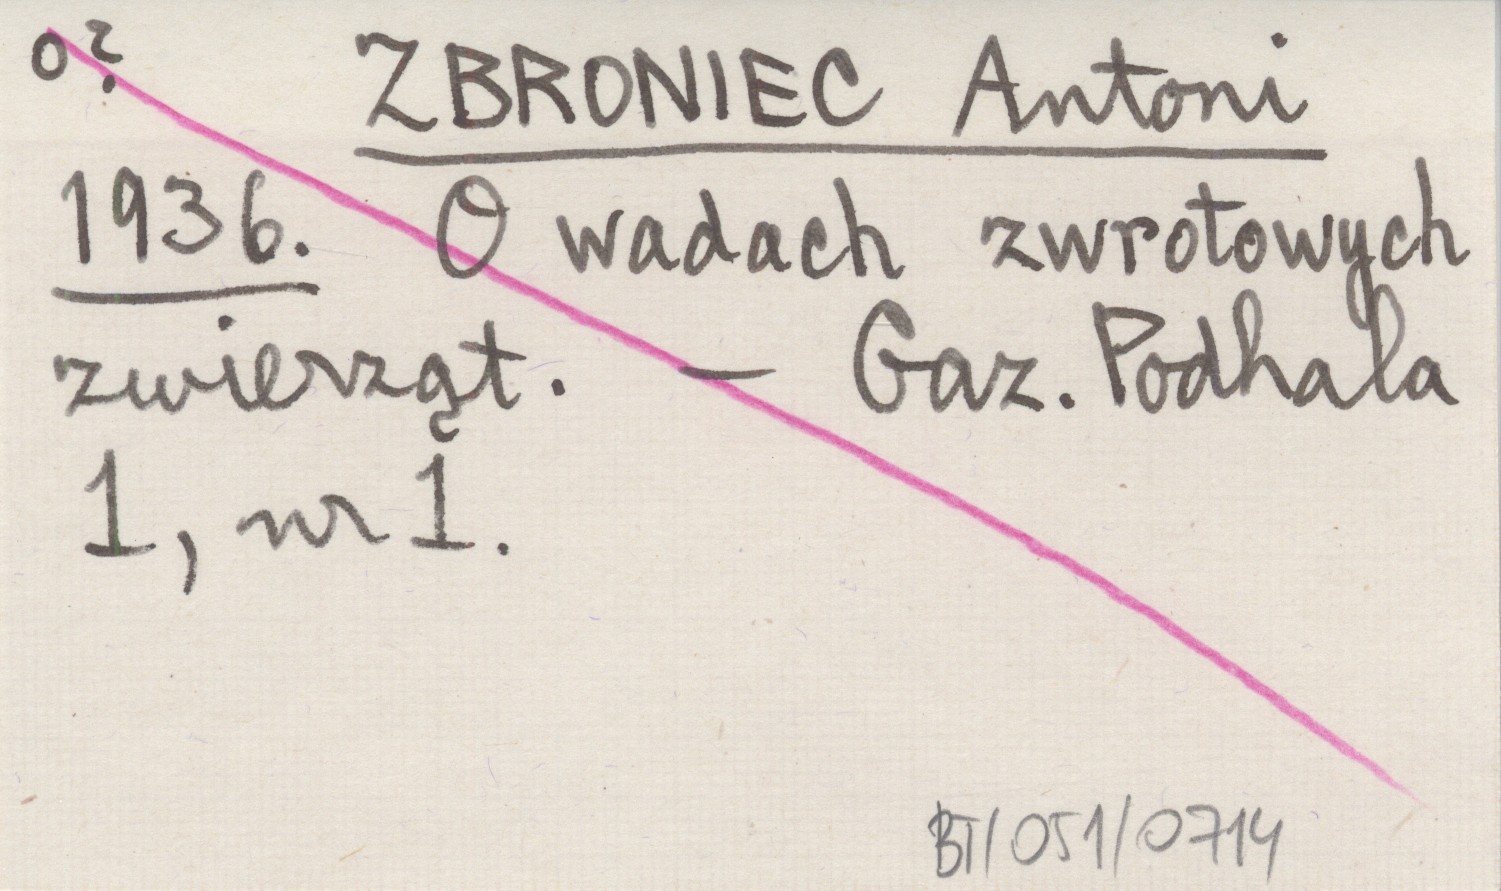 o?
ZBRONIEC Antoni
1936. O wadach zwrotowych
zwierząt. — Gaz. Podhala
1, nr 1.
BT/051/0714